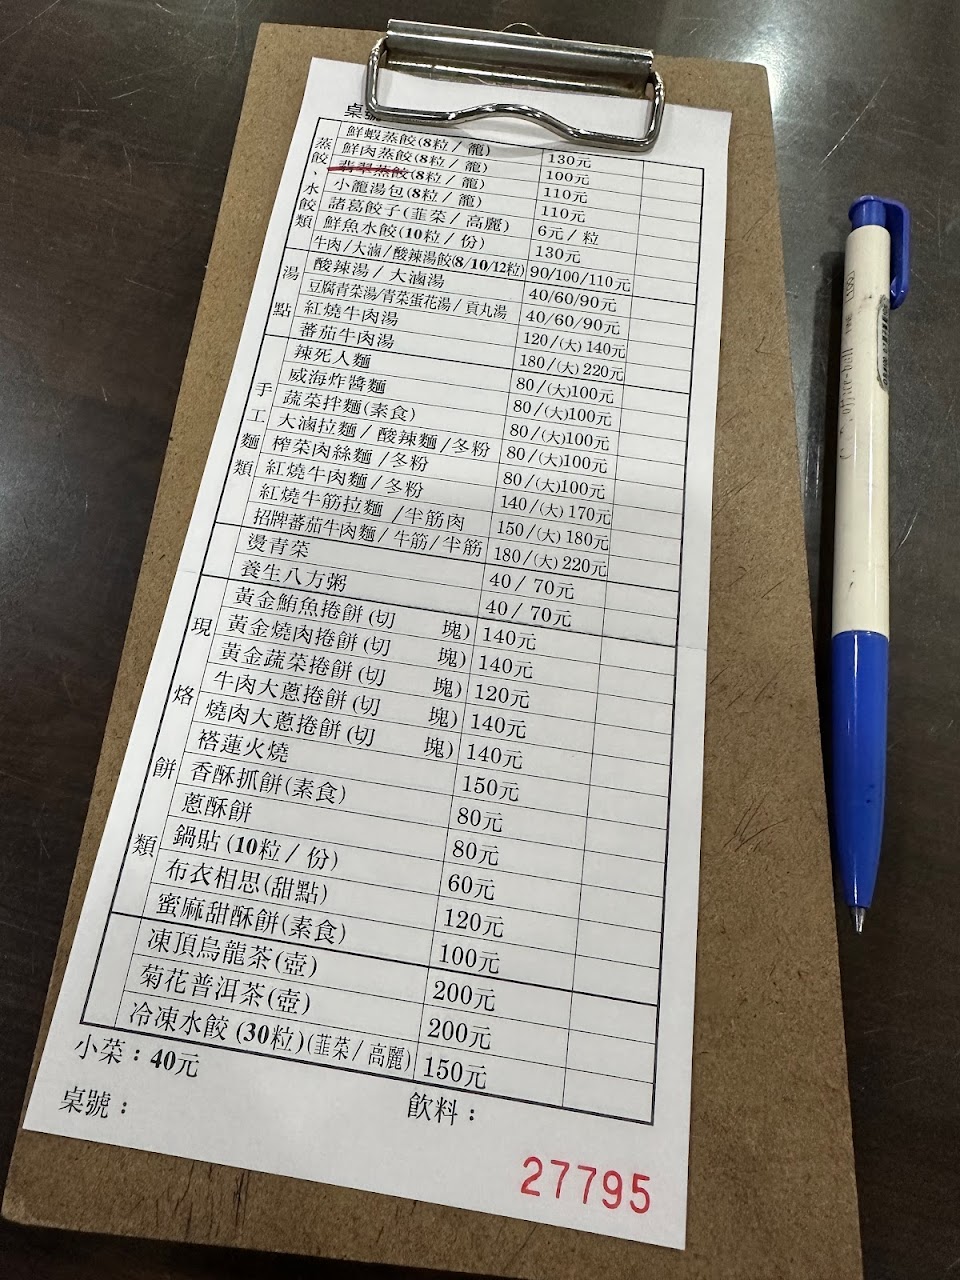 桌號
蒸餃、水餃類
鮮蝦蒸餃(8粒/籠) 130元
鮮肉蒸餃(8粒/籠) 100元
翡翠蒸餃(8粒/籠) 110元
小籠湯包(8粒/籠) 110元
諸葛餃子(韮菜/高麗) 6元/粒
鮮魚水餃(10粒/份) 130元
湯點
牛肉/大滷/酸辣湯餃(8/10/12粒) 90/100/110元
酸辣湯/大滷湯 40/60/90元
豆腐青菜湯/青菜蛋花湯/貢丸湯 40/60/90元
紅燒牛肉湯 120/(大)140元
蕃茄牛肉湯 180/(大)220元
手工麵類
辣死人麵 80/(大)100元
威海炸醬麵 80/(大)100元
蔬菜拌麵(素食) 80/(大)100元
大滷拉麵/酸辣麵/冬粉 80/(大)100元
榨菜肉絲麵/冬粉 80/(大)100元
紅燒牛肉麵/冬粉 140/(大)170元
紅燒牛筋拉麵/半筋肉 150/(大)180元
招牌蕃茄牛肉麵/牛筋/半筋 180/(大)220元
燙青菜 40/70元
養生八方粥 40/70元
現烙餅類
黃金鮪魚捲餅(切 塊) 140元
黃金燒肉捲餅(切 塊) 140元
黃金蔬菜捲餅(切 塊) 120元
牛肉大蔥捲餅(切 塊) 140元
燒肉大蔥捲餅(切 塊) 140元
褡蓮火燒 150元
香酥抓餅(素食) 80元
蔥酥餅 80元
鍋貼(10粒/份) 60元
布衣相思(甜點) 120元
蜜麻甜酥餅(素食) 100元
凍頂烏龍茶(壺) 200元
菊花普洱茶(壺) 200元
冷凍水餃(30粒)(韮菜/高麗) 150元
小菜：40元
桌號： 飲料：
27795